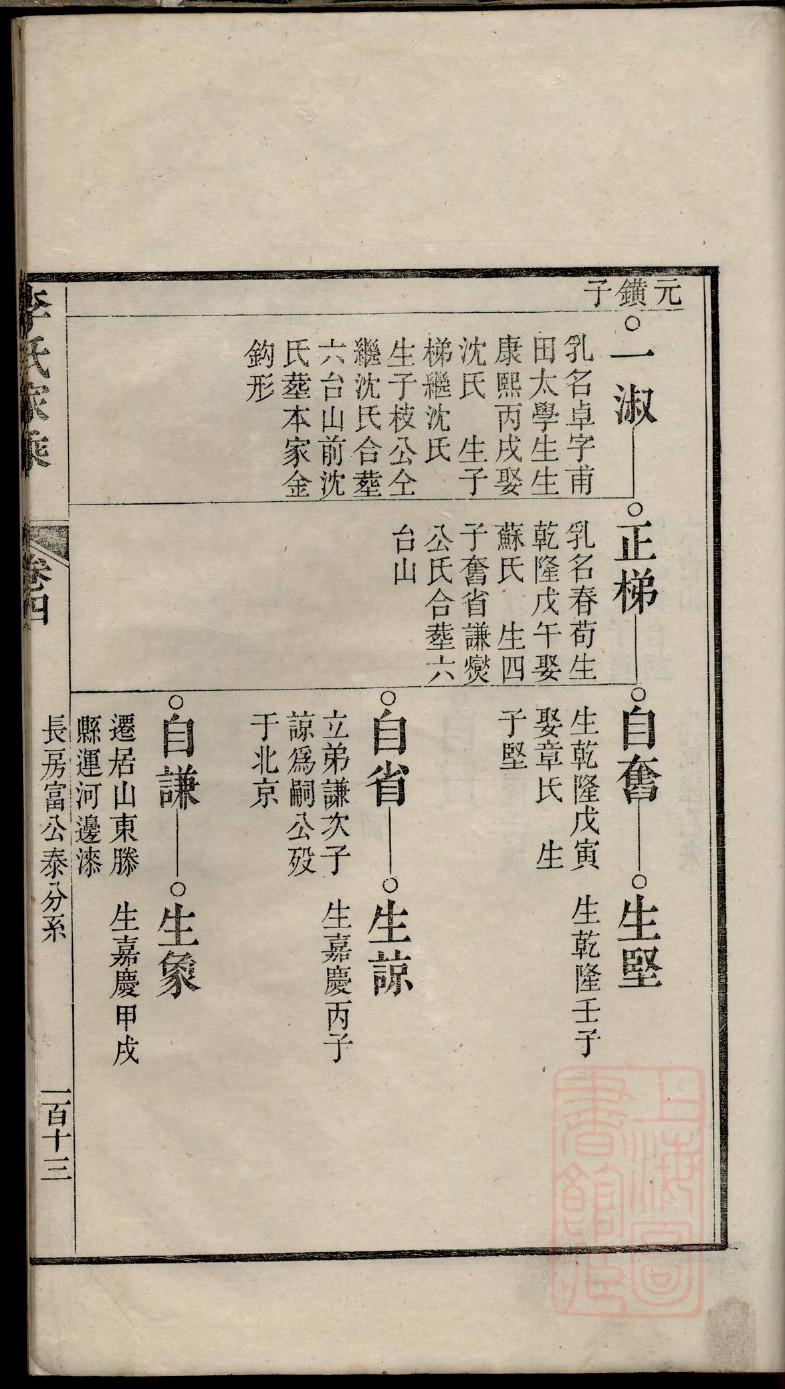 元鐄子
一淑
乳名卓字甫
田太學生生
康熙丙戌娶
沈氏　生子
梯繼沈氏
生子枝公仝
繼沈氏合塟
六台山前沈
氏塟本家金
鈎形
正梯
乳名春荀生
乾隆戊午娶
蘇氏　生四
子奮省謙爕
公氏合塟六
台山
自奮
生乾隆戊寅
娶章氏　生
子堅
生堅
生乾隆壬子
自省
立弟謙次子
諒爲嗣公歿
于北京
生諒
生嘉慶丙子
自謙
遷居山東滕
縣運河邊漆
生象
生嘉慶甲戌
李氏家乘
卷四
長房富公泰分系
一百十三
上海圖
書館藏